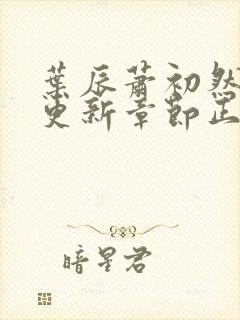 葉辰蕭初然
更新章節正
暗星君